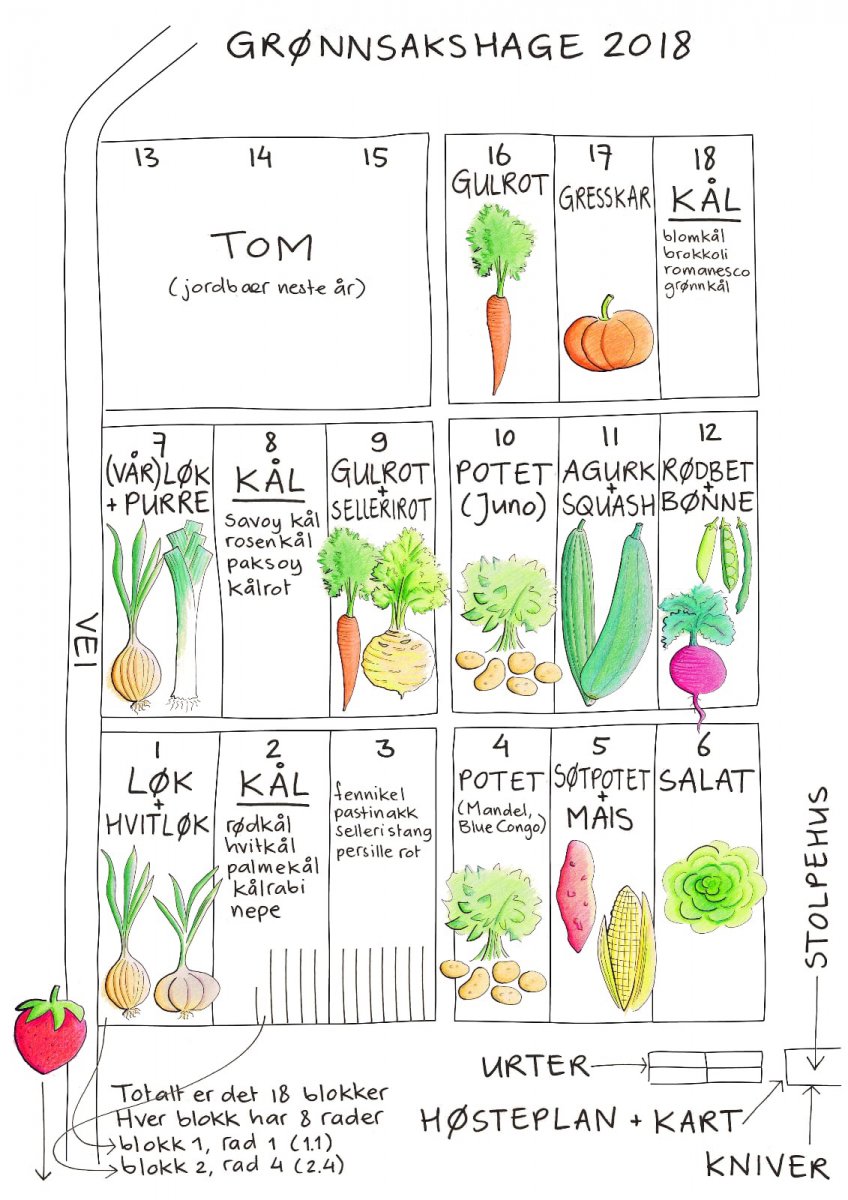 GRØNNSAKSHAGE 2018
13
14
15
TOM
(jordbær neste år)
16
GULROT
17
GRESSKAR
18
KÅL
blomkål
brokkoli
romanesco
grønnkål
7
(VÅR)LØK
+ PURRE
8
KÅL
savoy kål
rosenkål
paksoy
kålrot
9
GULROT
+
SELLERIROT
10
POTET
(Juno)
11
AGURK
+
SQUASH
12
RØDBET
+
BØNNE
VEI
1
LØK
+
HVITLØK
2
KÅL
rødkål
hvitkål
palmekål
kålrabi
nepe
3
fennikel
pastinakk
selleri stang
persille rot
4
POTET
(Mandel,
Blue Congo)
5
SØTPOTET
+
MAIS
6
SALAT
STOLPEHUS
URTER
HØSTEPLAN + KART
KNIVER
Totalt er det 18 blokker
Hver blokk har 8 rader
blokk 1, rad 1 (1.1)
blokk 2, rad 4 (2.4)